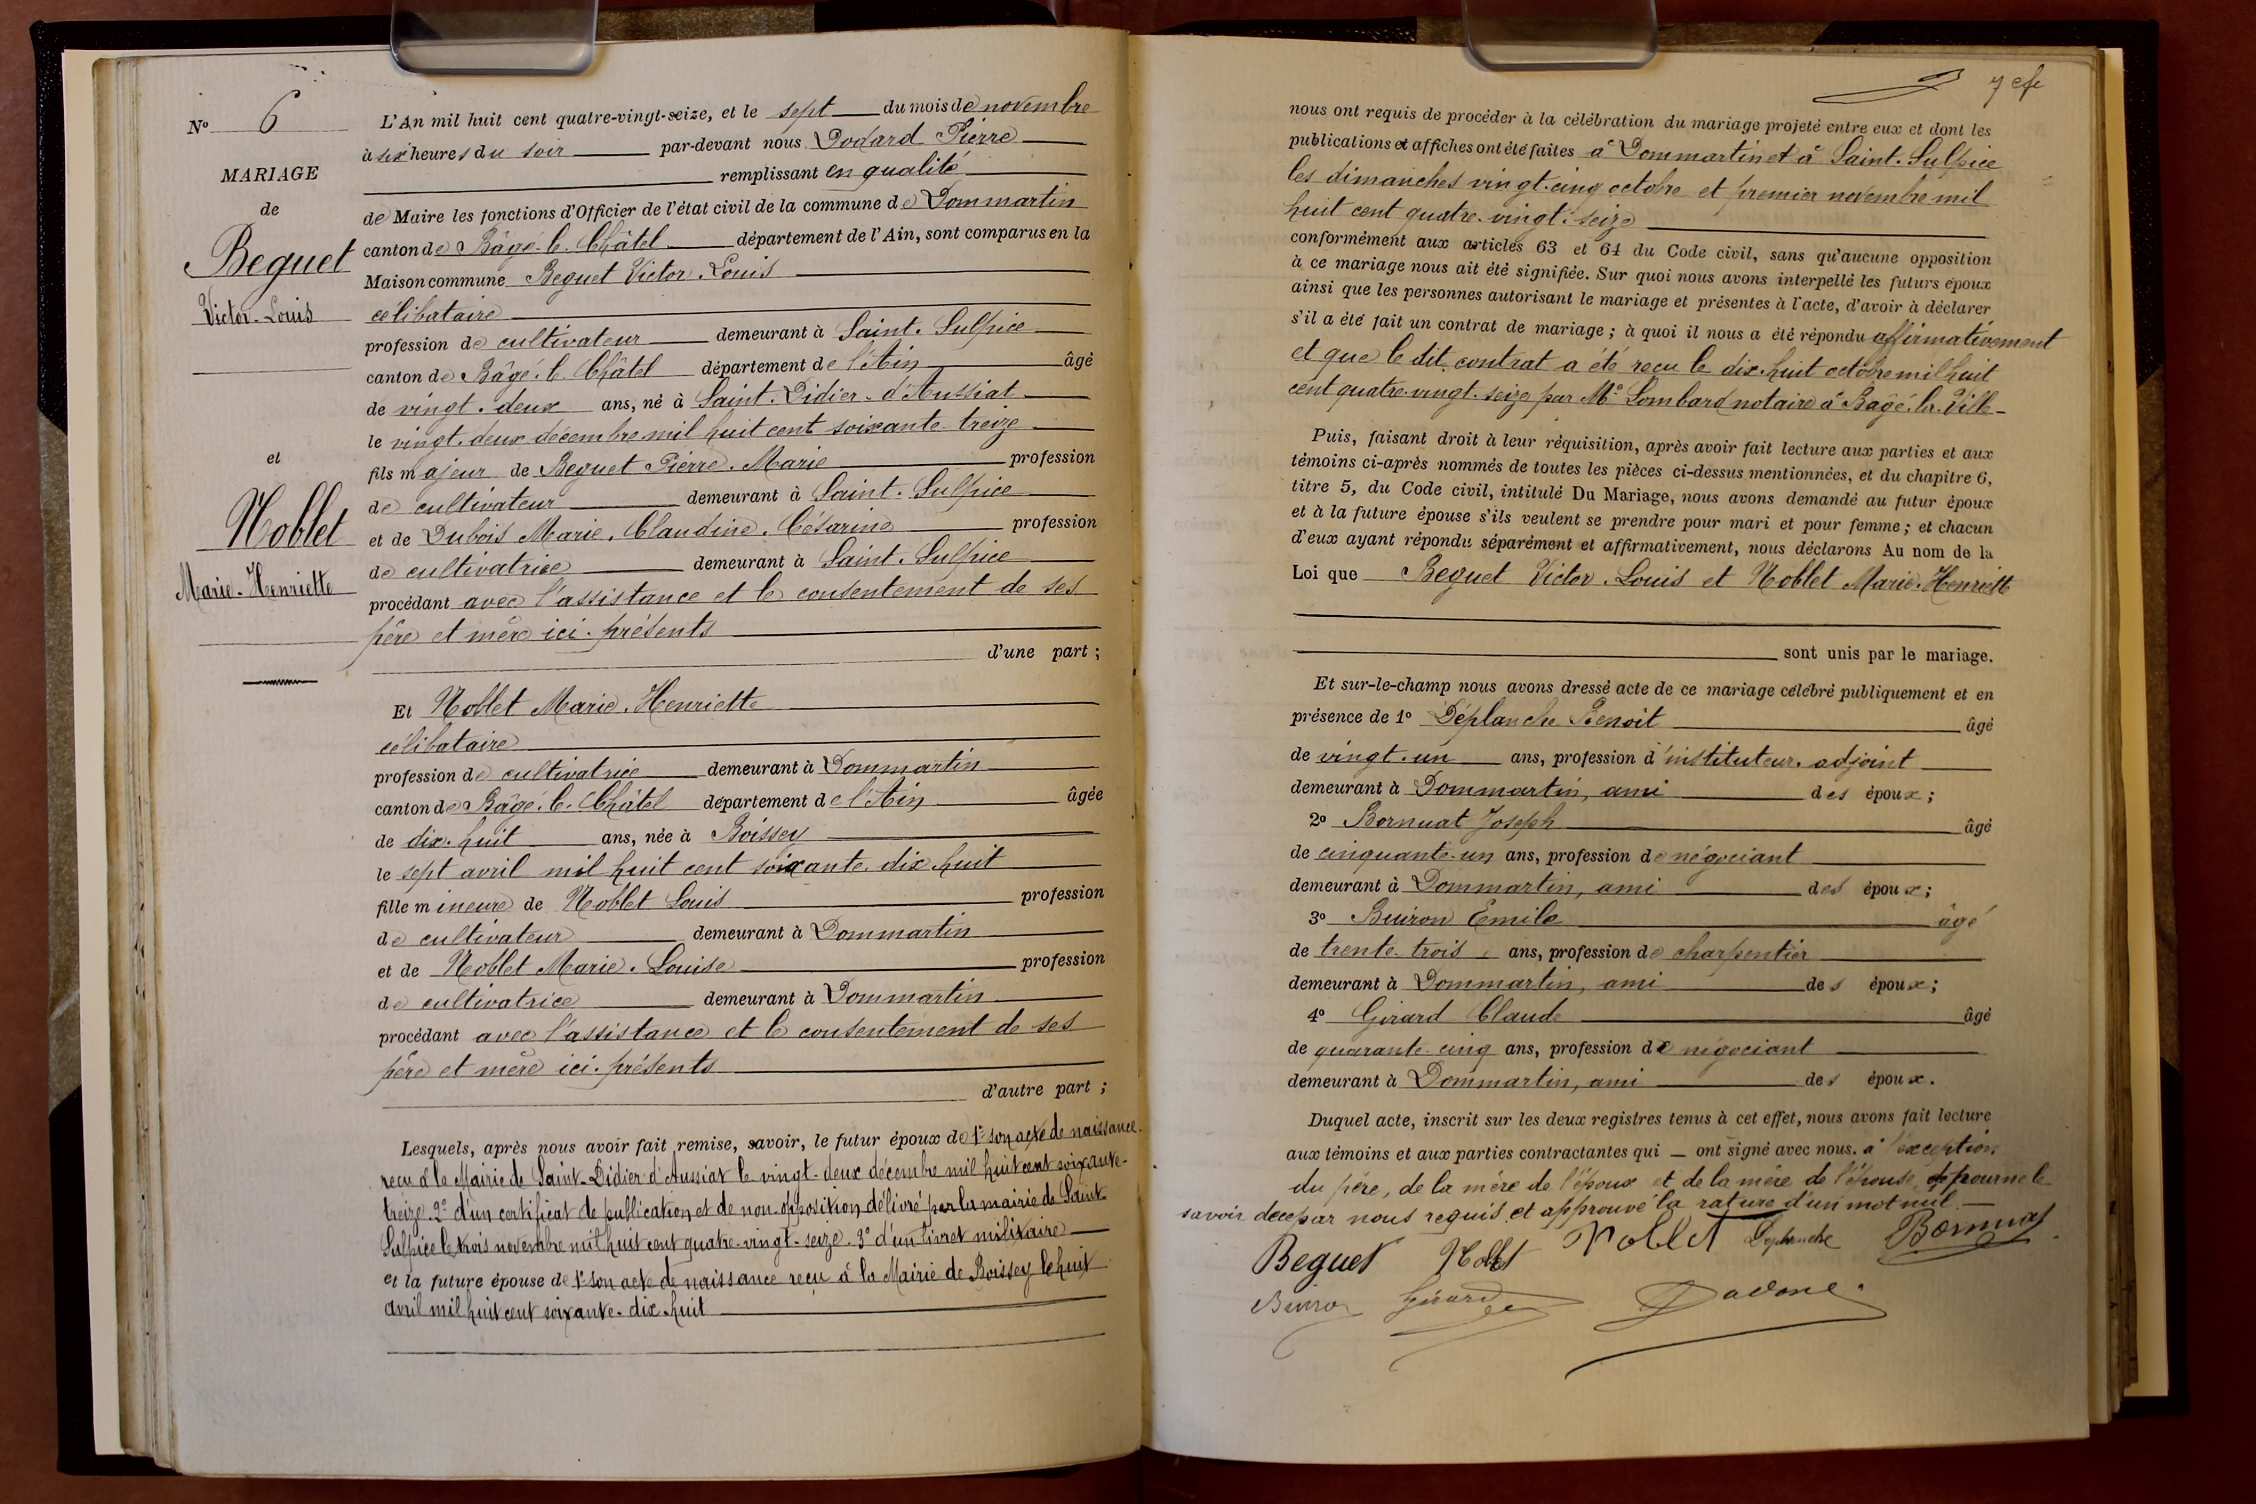 N° 6
MARIAGE
de
Beguet
Victor-Louis
et
Noblet
Marie-Henriette
L'An mil huit cent quatre-vingt-seize, et le sept du mois de novembre
à six heures du soir par-devant nous Dodard Pierre
remplissant en qualité
de Maire les fonctions d'Officier de l'état civil de la commune de Dommartin
canton de Bâgé-le-Châtel département de l'Ain, sont comparus en la
Maison commune Beguet Victor-Louis
célibataire
profession de cultivateur demeurant à Saint-Sulpice
canton de Bâgé-le-Châtel département de l'Ain âgé
de vingt-deux ans, né à Saint-Didier-d'Aussiat
le vingt-deux décembre mil huit cent soixante-treize
fils majeur de Beguet Pierre-Marie profession
de cultivateur demeurant à Saint-Sulpice
et de Dubois Marie-Claudine-Césarine profession
de cultivatrice demeurant à Saint-Sulpice
procédant avec l'assistance et le consentement de ses
père et mère ici-présents
d'une part ;
Et Noblet Marie-Henriette
célibataire
profession de cultivatrice demeurant à Dommartin
canton de Bâgé-le-Châtel département de l'Ain âgée
de dix-huit ans, née à Boissey
le sept avril mil huit cent soixante-dix-huit
fille mineure de Noblet Louis profession
de cultivateur demeurant à Dommartin
et de Noblet Marie-Louise profession
de cultivatrice demeurant à Dommartin
procédant avec l'assistance et le consentement de ses
père et mère ici-présents
d'autre part ;
Lesquels, après nous avoir fait remise, savoir, le futur époux de 1° son acte de naissance
reçu à la Mairie de Saint-Didier d'Aussiat le vingt-deux décembre mil huit cent soixante-
treize 2° d'un certificat de publication et de non-opposition délivré par la mairie de Saint-
Sulpice le trois novembre mil huit cent quatre-vingt-seize. 3° d'un livret militaire
et la future épouse de 1° son acte de naissance reçu à la Mairie de Boissey le huit
avril mil huit cent soixante-dix-huit
nous ont requis de procéder à la célébration du mariage projeté entre eux et dont les
publications et affiches ont été faites à Dommartin et à Saint-Sulpice
les dimanches vingt-cinq octobre et premier novembre mil
huit cent quatre-vingt-seize
conformément aux articles 63 et 64 du Code civil, sans qu'aucune opposition
à ce mariage nous ait été signifiée. Sur quoi nous avons interpellé les futurs époux
ainsi que les personnes autorisant le mariage et présentes à l'acte, d'avoir à déclarer
s'il a été fait un contrat de mariage ; à quoi il nous a été répondu affirmativement
et que le dit contrat a été reçu le dix-huit octobre mil huit
cent quatre-vingt-seize par Me Lombard notaire à Bâgé-la-Ville-
Puis, faisant droit à leur réquisition, après avoir fait lecture aux parties et aux
témoins ci-après nommés de toutes les pièces ci-dessus mentionnées, et du chapitre 6,
titre 5, du Code civil, intitulé Du Mariage, nous avons demandé au futur époux
et à la future épouse s'ils veulent se prendre pour mari et pour femme ; et chacun
d'eux ayant répondu séparément et affirmativement, nous déclarons Au nom de la
Loi que Beguet Victor-Louis et Noblet Marie-Henriette
sont unis par le mariage.
Et sur-le-champ nous avons dressé acte de ce mariage célébré publiquement et en
présence de 1° Déplanche Benoit âgé
de vingt-un ans, profession d'instituteur-adjoint
demeurant à Dommartin, ami des époux ;
2° Bornuat Joseph âgé
de cinquante-un ans, profession de négociant
demeurant à Dommartin, ami des époux ;
3° Buiron Emile âgé
de trente-trois ans, profession de charpentier
demeurant à Dommartin, ami des époux ;
4° Girard Claude âgé
de quarante-cinq ans, profession de négociant
demeurant à Dommartin, ami des époux.
Duquel acte, inscrit sur les deux registres tenus à cet effet, nous avons fait lecture
aux témoins et aux parties contractantes qui ont signé avec nous. à l'exception
du père, de la mère de l'époux et de la mère de l'épouse pour ne le
savoir de ce par nous requis et approuvé la rature d'un mot nul
Beguet Noblet Noblet Deplanche Bornuat
Buiron Girard